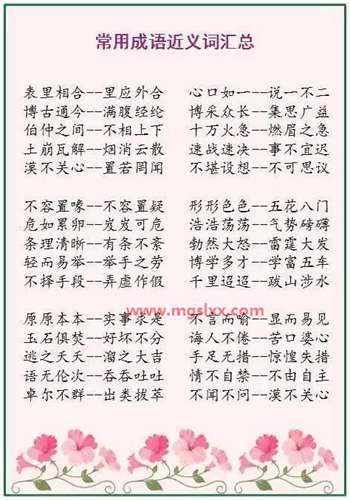 常用成语近义词汇总
表里相合--里应外合 心口如一--说一不二
博古通今--满腹经纶 博采众长--集思广益
伯仲之间--不相上下 十万火急--燃眉之急
土崩瓦解--烟消云散 速战速决--事不宜迟
漠不关心--置若罔闻 不堪设想--不可思议
不容置喙--不容置疑 形形色色--五花八门
危如累卵--岌岌可危 浩浩荡荡--气势磅礴
条理清晰--有条不紊 勃然大怒--雷霆大发
轻而易举--举手之劳 博学多才--学富五车
不择手段--弄虚作假 千里迢迢--跋山涉水
www.mgslxx.com
原原本本--实事求是 不言而喻--显而易见
玉石俱焚--好坏不分 诲人不倦--苦口婆心
逃之夭夭--溜之大吉 手足无措--惊惶失措
语无伦次--吞吞吐吐 情不自禁--不由自主
卓尔不群--出类拔萃 不闻不问--漠不关心